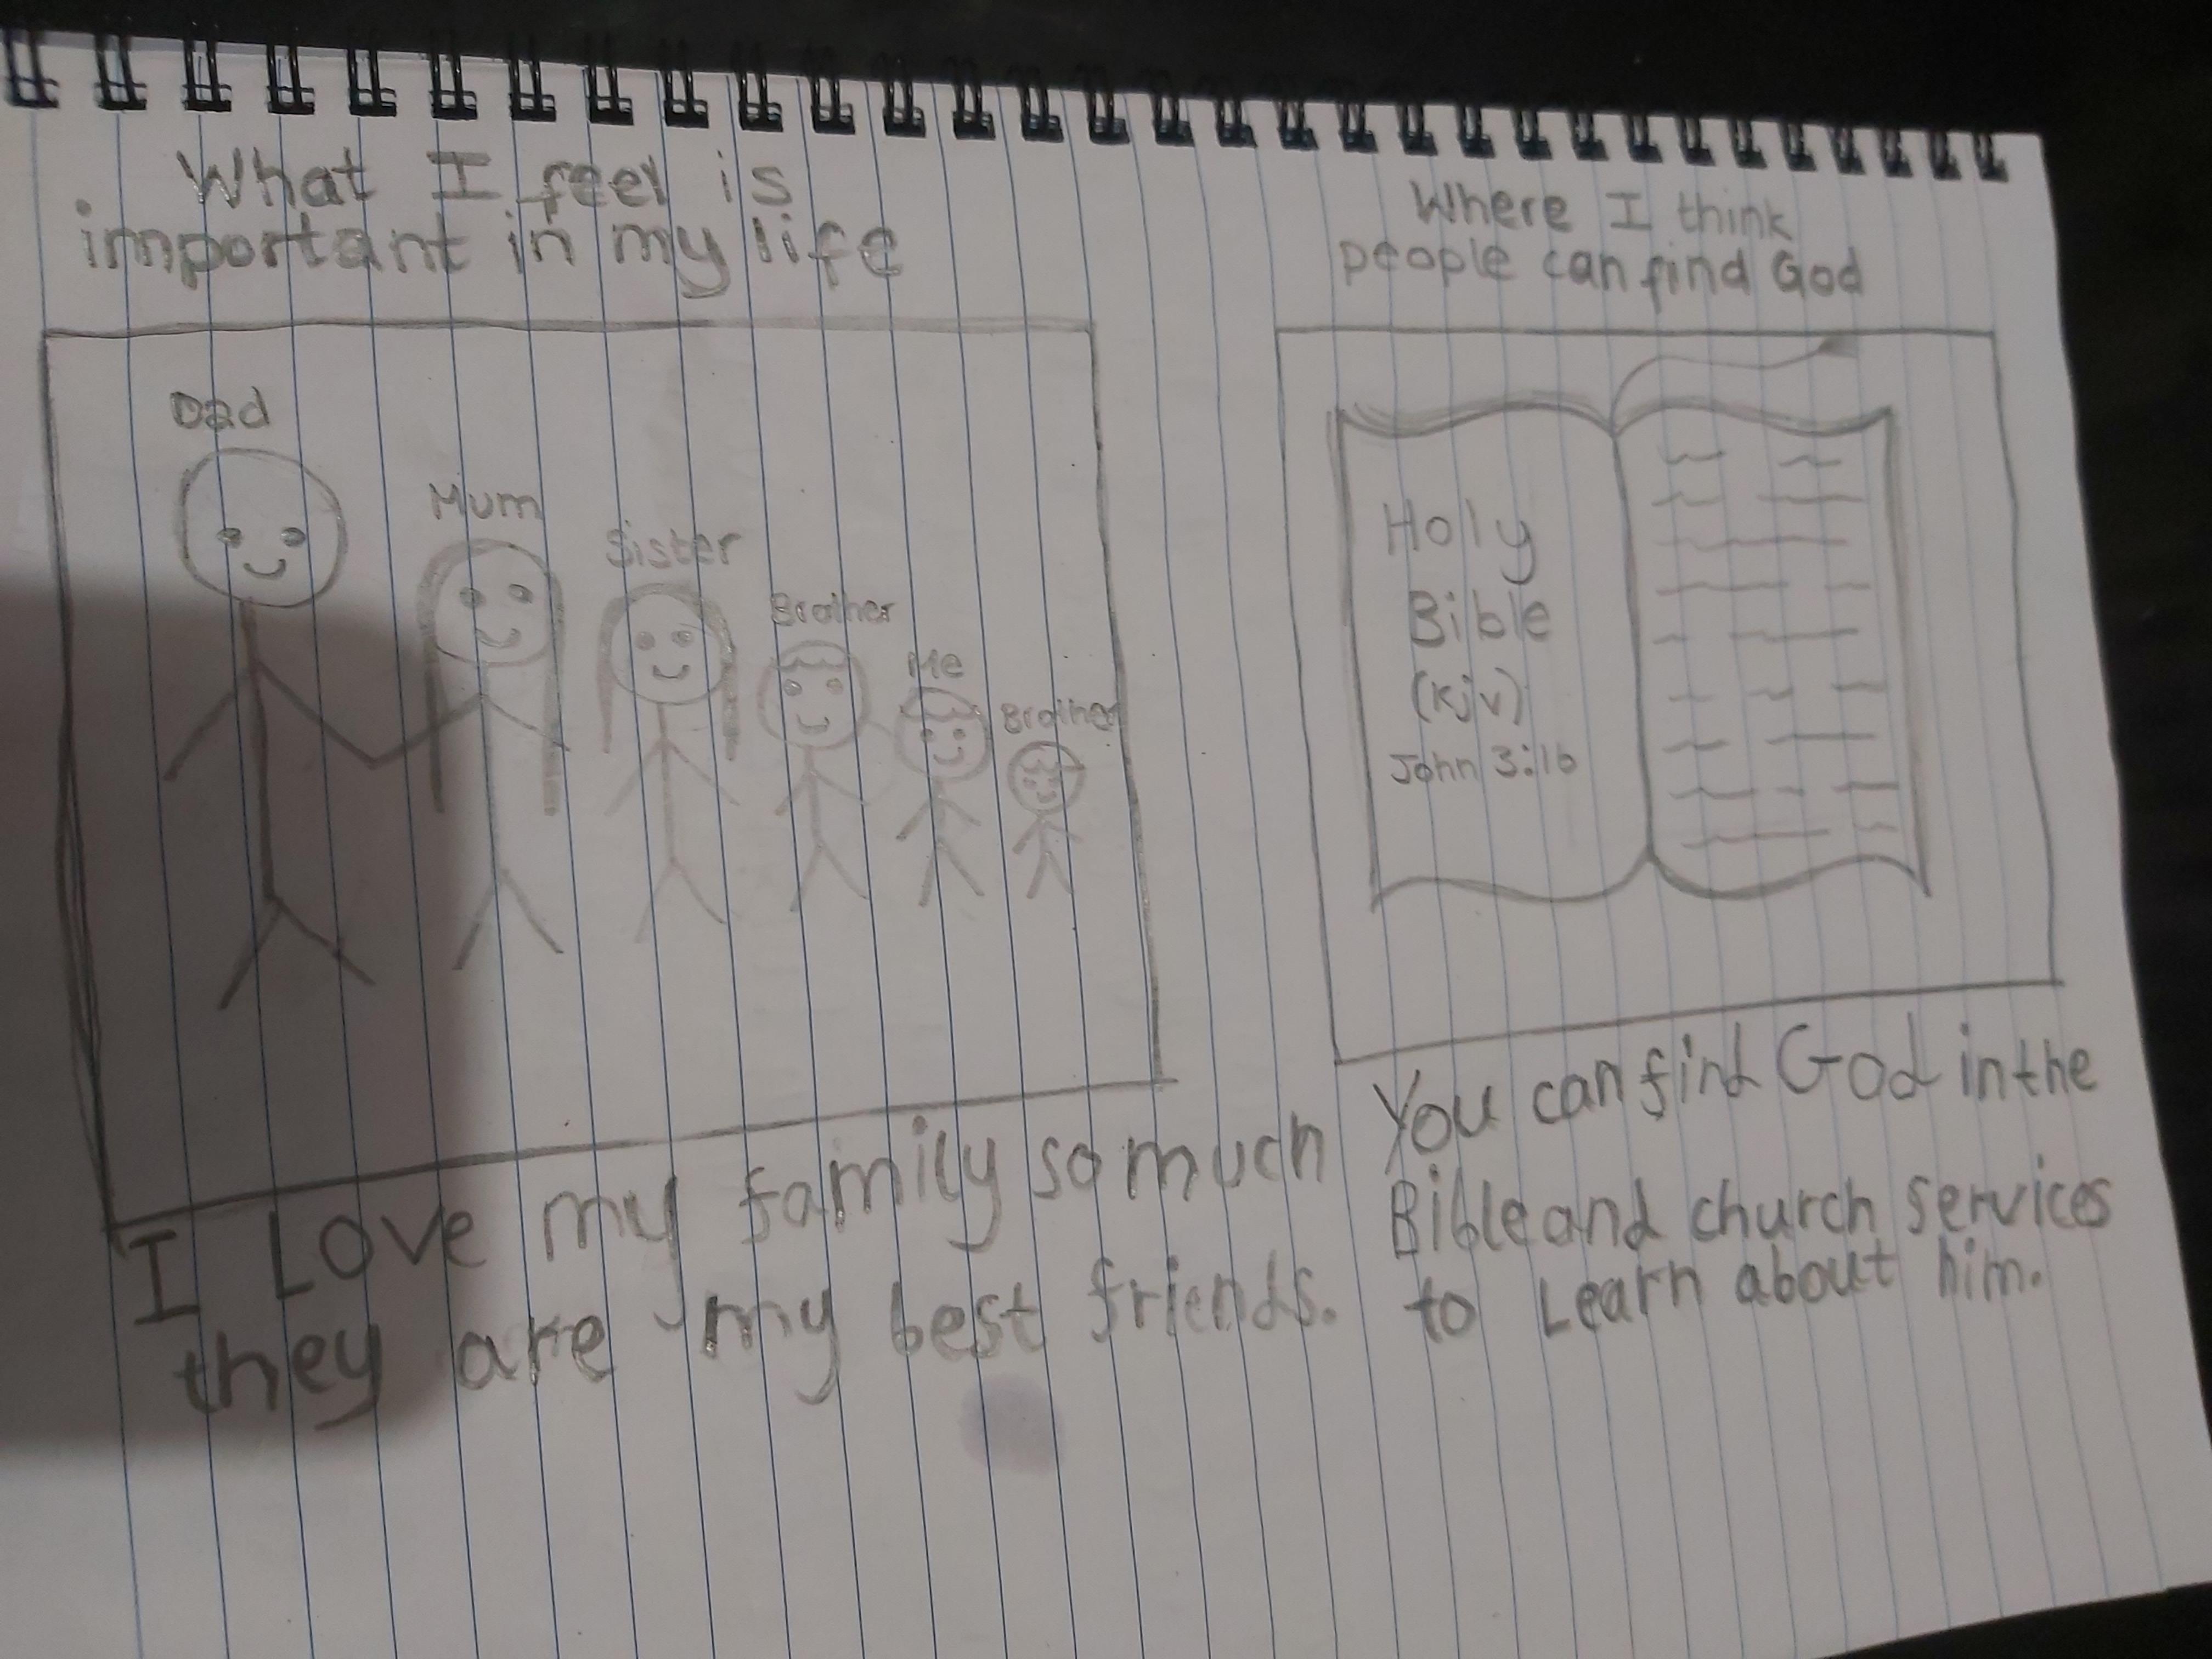 What I feel is
important in my life
Dad
Mum
Sister
Brother
Me
Brother
I Love my family so much
they are my best friends.
Where I think
people can find God
Holy
Bible
(Kjv)
John 3:16
You can find God in the
Bible and church services
to Learn about him.